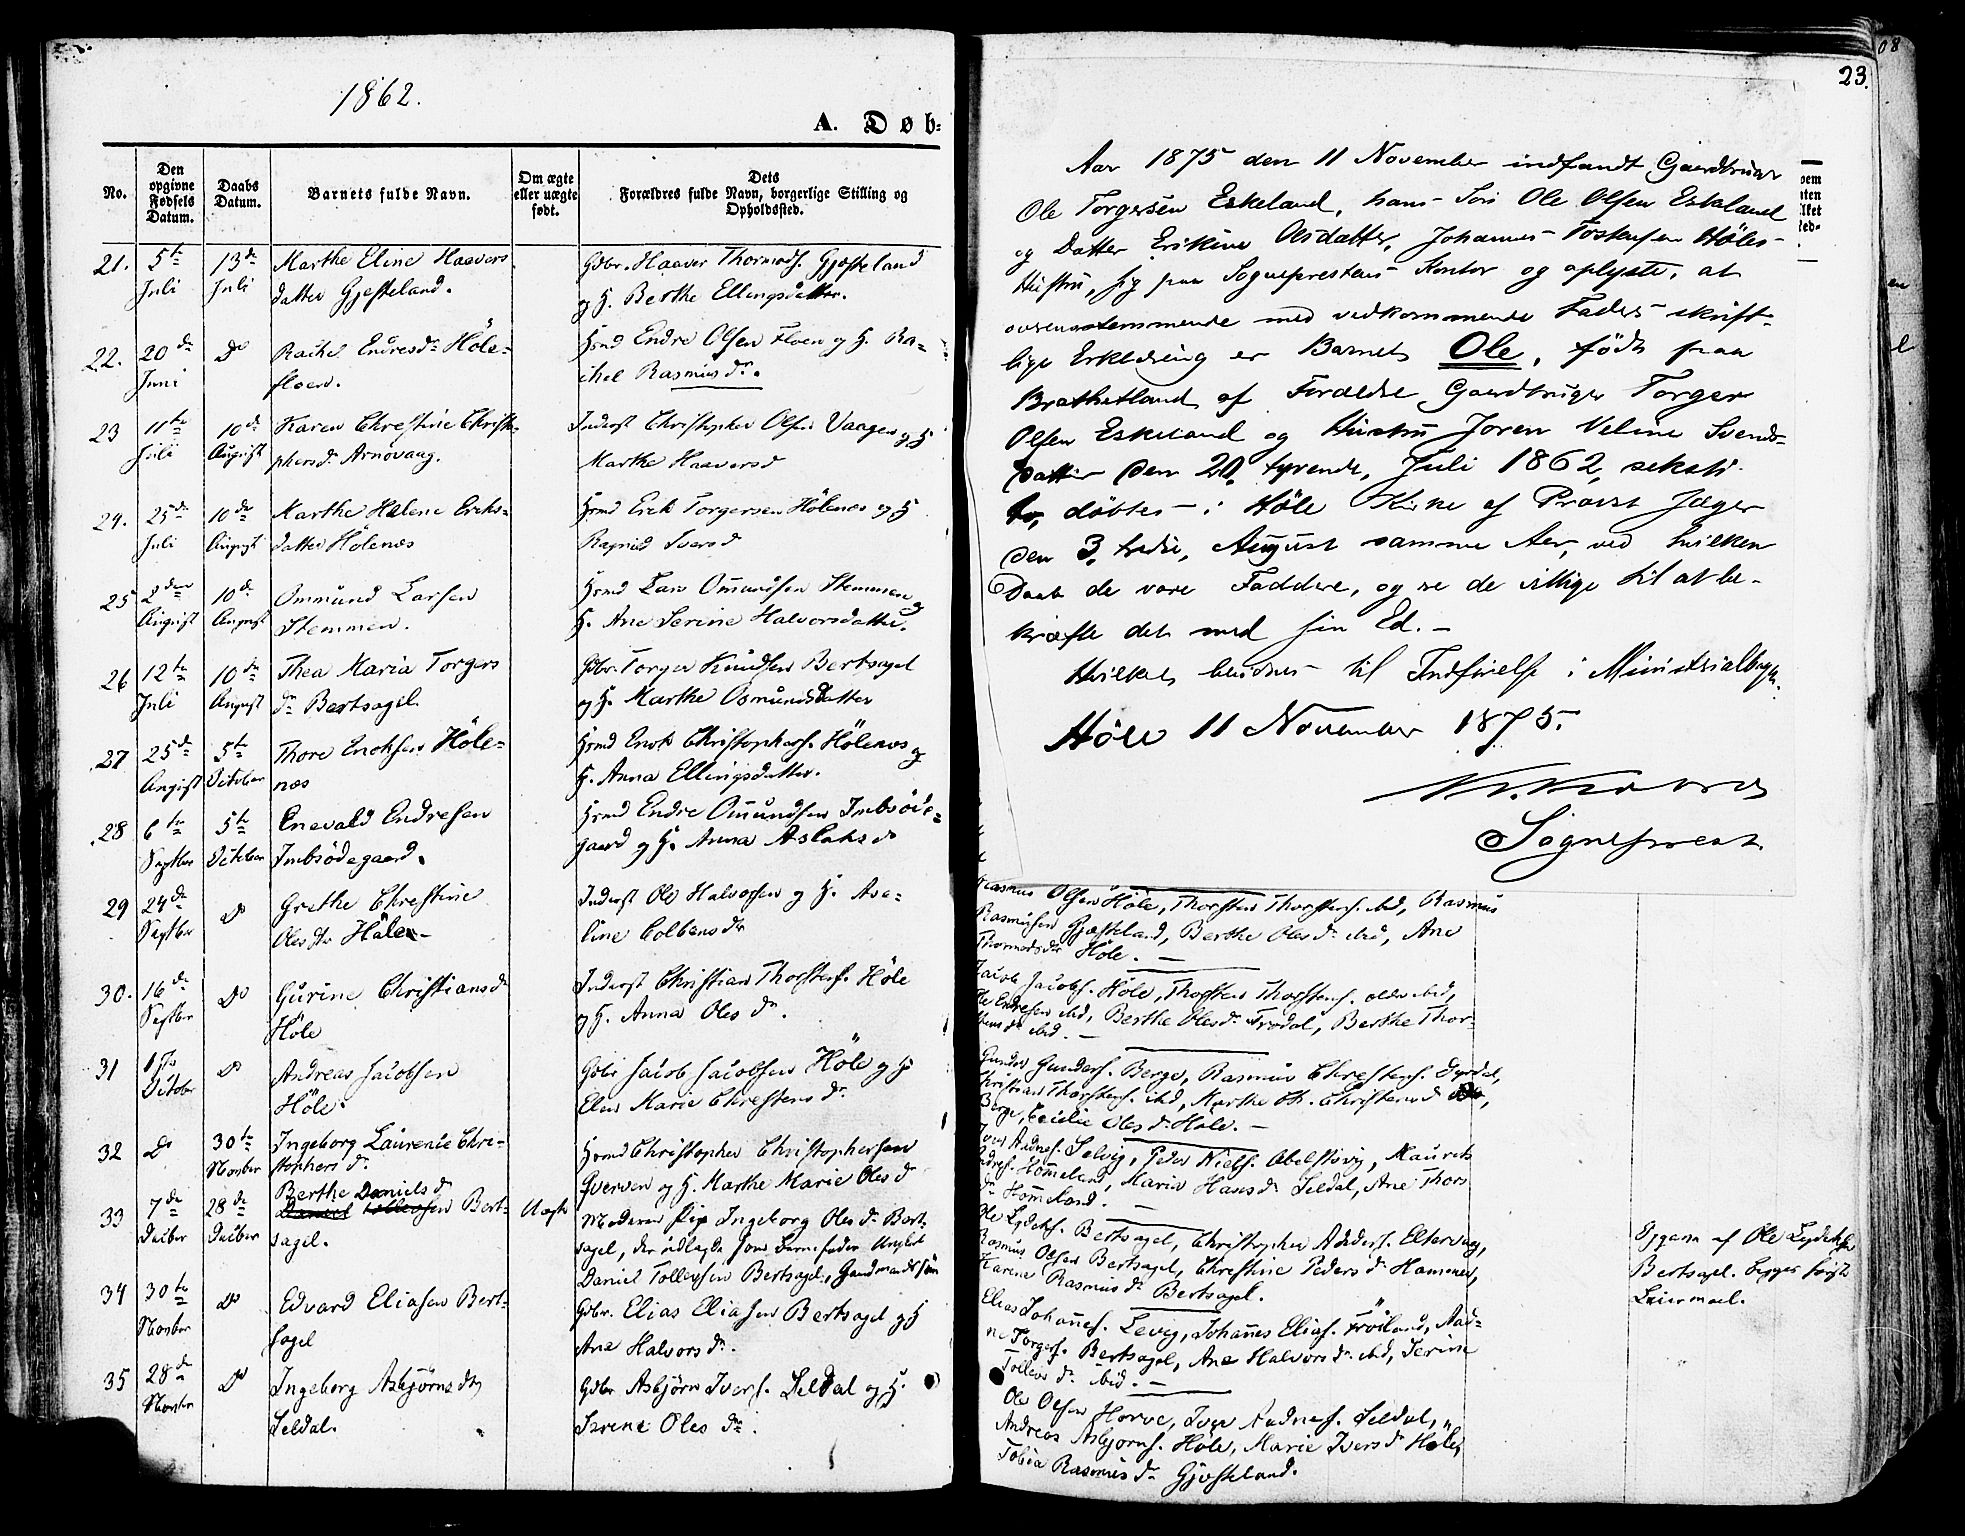 1862.
A. Døb=
No.
Den opgivne Fødsels Datum.
Daabs Datum.
Barnets fulde Navn.
Om ægte eller uægte født.
Dets Forældres fulde Navn, borgerlige Stilling og Opholdssted.
21. 5te Juli 13de Juli Marthe Eline Haavers
datter Gjesteland.
Gdbr. Haaver Thormods. Gjesteland
og H. Berthe Ellingsdatter.
22. 20de Juni Do Rachel Endresdr Höle=
floen.
Hsmd Endre Olsen Floen og H. Ra=
chel Rasmusdr.
23 11te Juli 10de August Karen Chrestine Christo
phersdr Arnovaag.
Inderst Christopher Olsen Vaagen og H
Marthe Haaversd
24. 25de Juli 10de August Marthe Helene Eriks=
datter Hölenæs
Hsmd Erik Torgersen Hölenæs og H
Ragnild Iversd
25 2den August 10de August Ommund Larsen
Stemmen.
Hsmd Lars Omundsen Stemmen og
H. Ane Serine Halvorsdatter.
26 12te Juli 10de August Thea Maria Torgers
dr Bertsagel.
Gdbr. Torger Knudsen Bertsagel
og H. Marthe Osmundsdatter
27 25de August 5te October Thore Enoksen Höle=
næs
Hsmd Enok Christophers. Hölenæs og
H. Anna Ellingsdatter.
28 6te Septber 5te October Enevald Endresen
Imbsödegaard.
Hsmd Endre Omundsen Imbsöde=
gaard og H. Anna Aslaksdr
29 24de Septber Do Grethe Chrestine
Olesdtr Höle
Inderst Ole Halvorsen og H. Ave=
line Colbensdr
30. 16de Septber Do Gurine Christiansdr
Höle
Inderst Christian Thorstens. Höle
og H. Anna Olesdr.
31 1ste October Do Andreas Jacobsen
Höle.
Gdbr Jacob Jacobsen Höle og H
Elen Marie Chrestensdr
32 Do 30te Novber Ingeborg Laurence Chri=
stophersdr.
Hsmd Christopher Christophersen
Qverven og H. Marthe Marie Olesdr
33 7de Decber 28de Decber Berthe Danielsdr
Daniel Tollevsen Bert=
sagel.
Uægte
Moderen Pige Ingeborg Olesdr Bert
sagel, der udlagde som Barnefader Ungkarl
Daniel Tollevsen Bertsagel, Gaardmandssön
34 30te Novber Do Edvard Eliasen Bert=
sagel
Gdbr. Elias Eliasen Bertsagel og H
Ane Halvorsdr.
35 28de Novber Do Ingeborg Asbjörnsdtr
Seldal.
Gdbr Asbjörn Ivers. Seldal og H.
Serene Olesdr.
23.
Aar 1875 den 11 November indfandt Gaardbruger
Ole Torgersen Eskeland, hans Søn Ole Olsen Eskeland
og Datter Erikine Olsdatter, Johannes Tostensen Höles
Hustru, sig paa Sogneprestens Kontor og oplyste, at
overensstemmende med vedkommende Faders skrift=
lige Erklæring er Barnet Ole, født paa
Brathetland af Forældre Gaardbruger Torger
Olsen Eskeland og Hustru Joren Veline Svends=
datter den 20, tyvende, Juli 1862, seksti
to, døbtes i Höle Kirke af Provst Jæger
den 3, tredie, August samme Aar, ved hvilken
Daab de vare Faddere, og re de villige til at be=
kræfte det med sin Ed. —
Hvilket bevidnes til Indførelse i Ministerialbogen.
Höle 11 November 1875.
Sogneprest.
Rasmus Olsen Höle, Thorsten Thorstens. ibid, Rasmus
Rasmusen Gjesteland, Berthe Olesdr ibid, Ane
Thormodsdr Höle. —
Jacob Jacobs. Höle, Thorsten Thorstens. ældre ibid,
Ole Endresen ibid, Berthe Olesdr Frodal, Berthe Thor=
stensdr ibid. —
Gunder Gunders. Berge, Rasmus Chrestens. Dyrdal,
Christian Thorstens. ibid, Marthe Ch. Christensdr
Berge, Cecilie Olesdr Höle. —
Iver Aadnes. Selvig, Peder Niels. Obelstvig, Maurits
Hommeland, Maria Hansdr Seldal, Ane Thors
dr Hommeland. —
Ole Lydeks. Bertsagel, Christopher Adders. Eltervaag,
Rasmus Olsen Bertsagel, Chrestine Pedersdr Hammer,
Karena Rasmusdr Bertsagel.
Opgivet af Ole Lydeksen
Bertsagel. begges første
Leiermaal.
Elias Johannes. Levig, Johannes Elias. Fröiland, Aad=
ne Torgers. Bertsagel, Ane Halvorsdr ibid, Serine
Tollevsdr ibid. —
Ole Olsen Horve, Iver Aadnes. Seldal,
Andreas Asbjörns. Höle, Marie Iversdr Höle,
Tobia Rasmusdr Gjesteland.